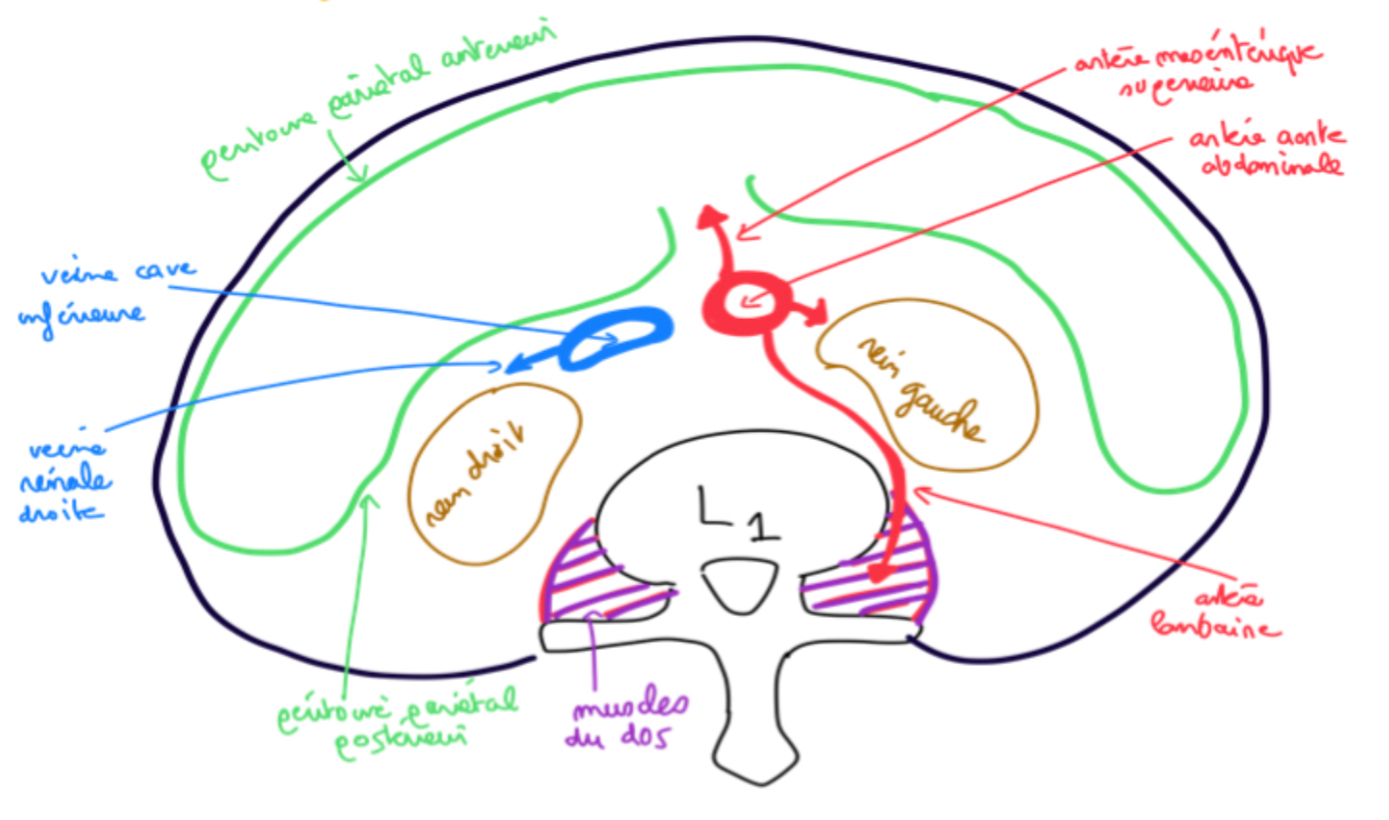 péritoine pariétal antérieur
artère mésentérique
supérieure
artère aorte
abdominale
veine cave
inférieure
rein gauche
veine
rénale
droite
rein droit
L1
artère
lombaire
péritoine pariétal
postérieur
muscles
du dos